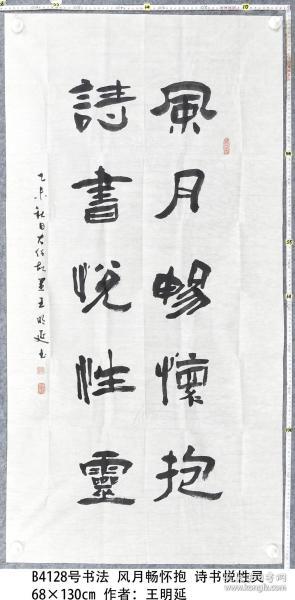 風月暢懷抱
詩書悅性靈
乙未秋日
王明延書
B4128号书法 风月畅怀抱 诗书悦性灵
68×130cm 作者：王明延